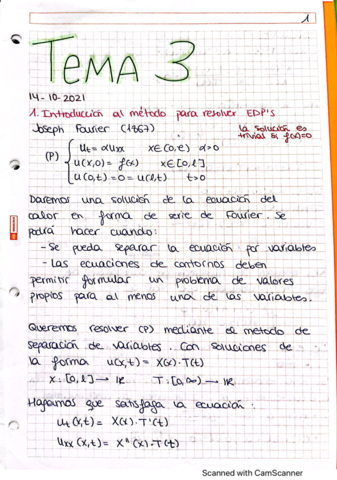 1
TEMA 3
14-10-2021
1. Introducción al método para resolver EDP's
Joseph Fourier (1867)
la solución es
trivial si f(x)=0
(P) { u_t = αu_xx x∈(0,ℓ) α>0
u(x,0) = f(x) x∈[0,ℓ]
u(0,t) = 0 = u(ℓ,t) t>0
Daremos una solución de la ecuación del
calor en forma de serie de Fourier. Se
podrá hacer cuando:
- Se pueda separar la ecuación por variables
- Las ecuaciones de contornos deben
permitir formular un problema de valores
propios para al menos una de las variables.
Queremos resolver (P) mediante el método de
separación de variables. Con soluciones de
la forma u(x,t) = X(x)·T(t)
X: [0,ℓ] → ℝ T: [0,∞) → ℝ
Hagamos que satisfaga la ecuación:
u_t (x,t) = X(x)·T'(t)
u_xx (x,t) = X''(x)·T(t)
Scanned with CamScanner